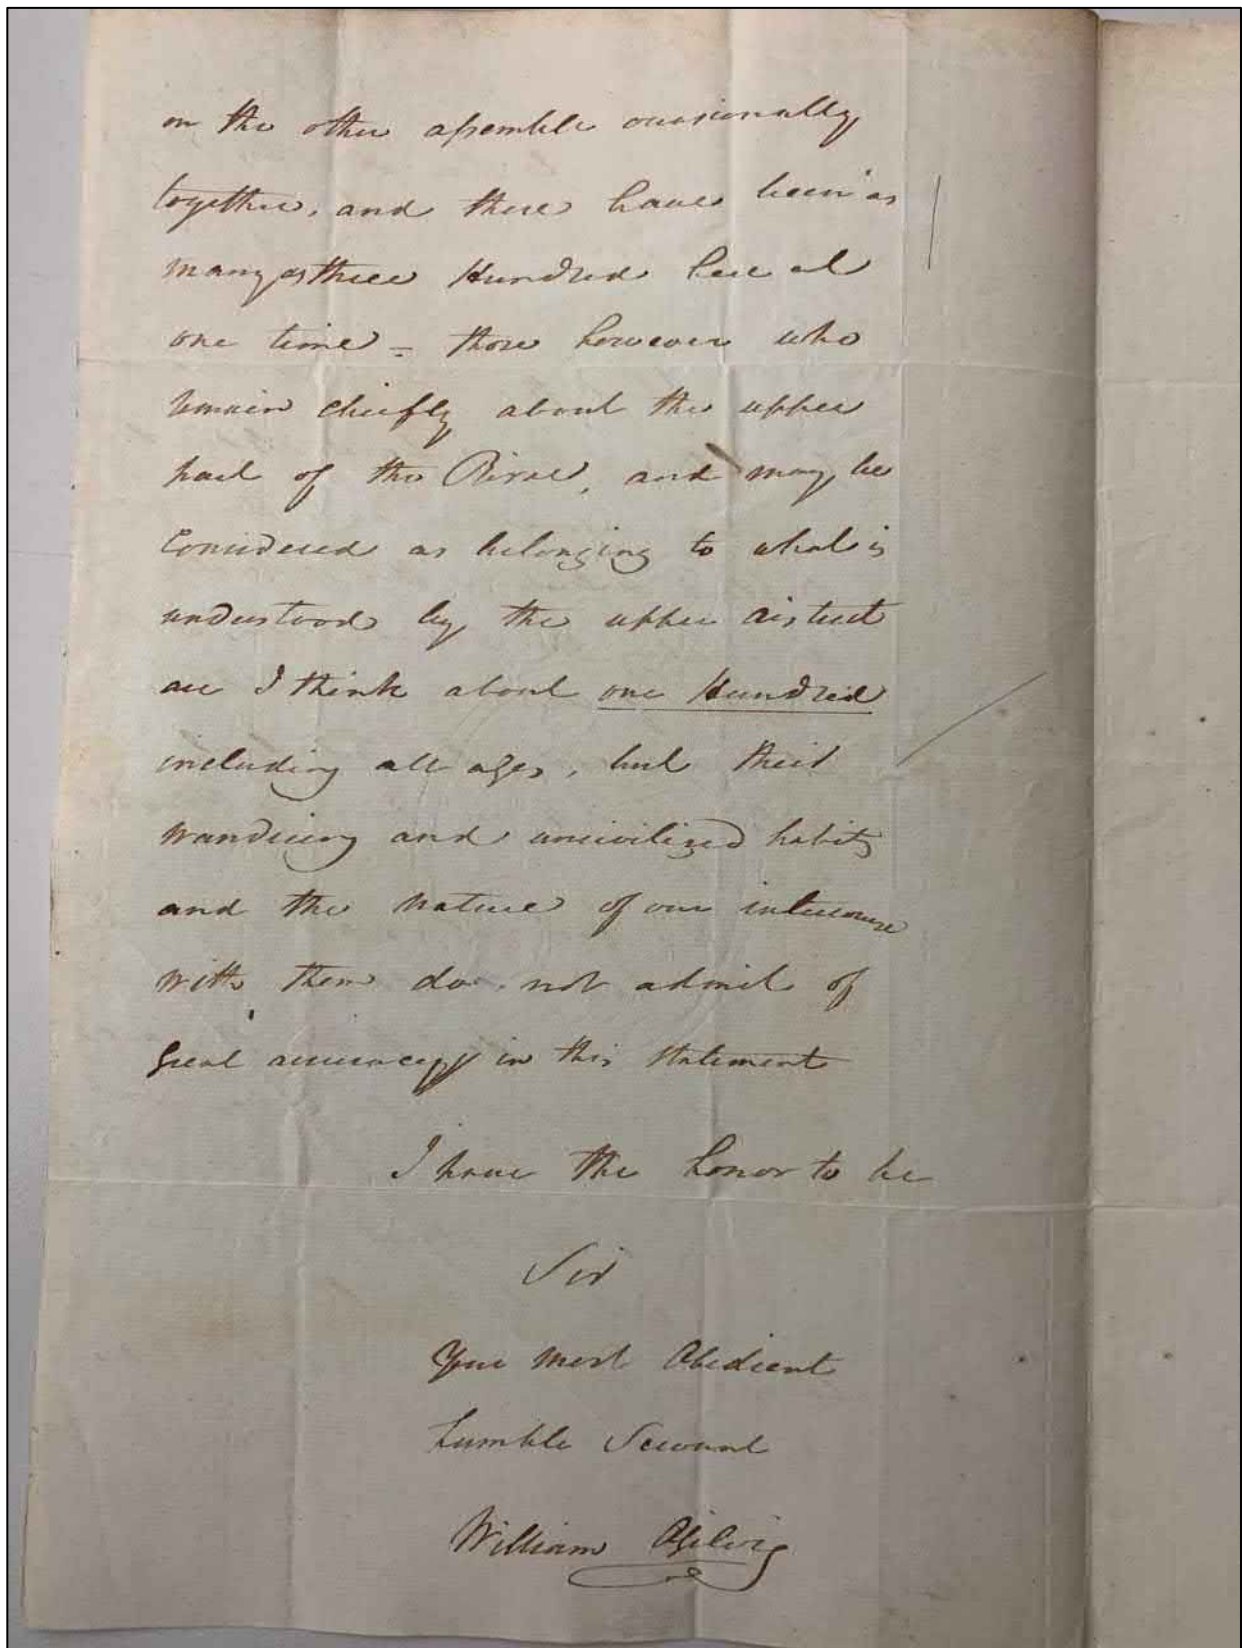 on the other assemble occasionally
together, and there have been as
many as three Hundred here at
one time - those however who
remain chiefly about the upper
part of the River, and may be
Considered as belonging to what is
understood by the upper district
are I think about one Hundred
including all ages, but their
wandering and uncivilized habits
and the nature of our intercourse
with them do not admit of
great accuracy in this statement
I have the honor to be
Sir
Your most Obedient
humble Servant
William Ogilvie